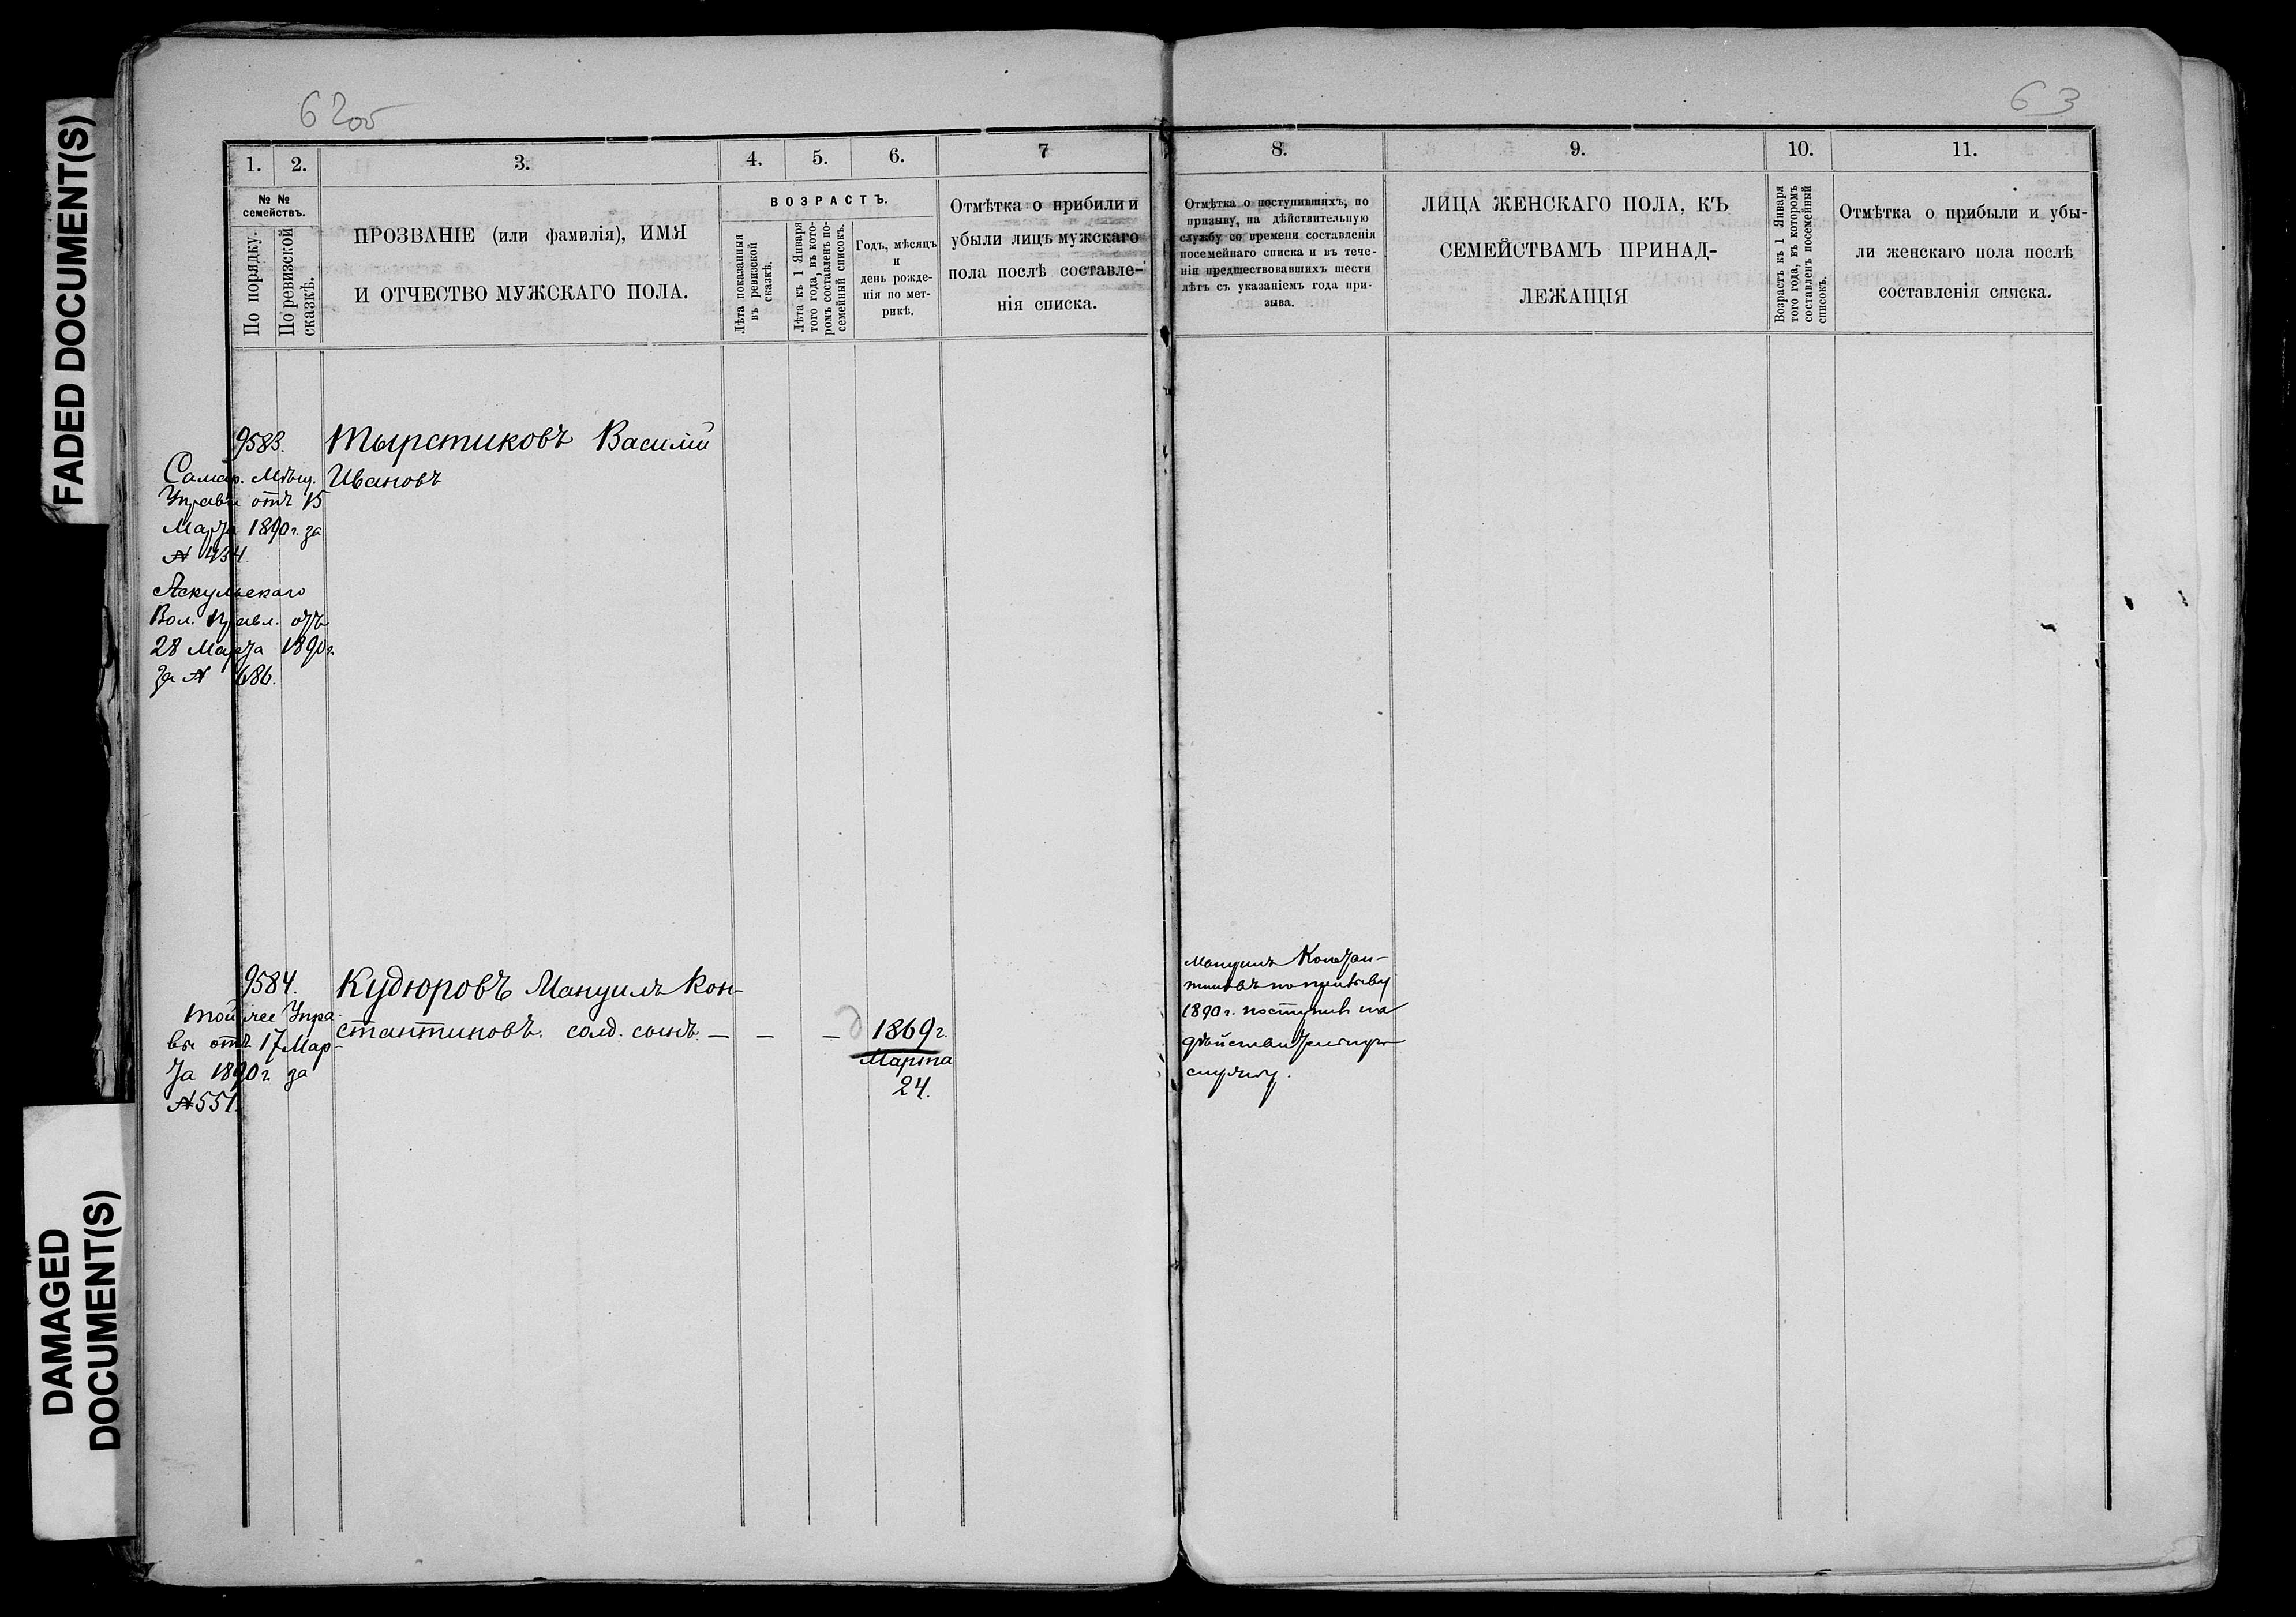 FADED DOCUMENT(S)
DAMAGED
DOCUMENT(S)
62об
63
1.
2.
3.
4.
5.
6.
7
8.
9.
10.
11.
№ №
семействъ.
По порядку.
По ревизской
сказкѣ.
ПРОЗВАНІЕ (или фамилія), ИМЯ
И ОТЧЕСТВО МУЖСКАГО ПОЛА.
ВОЗРАСТЪ.
Лѣта показанныя
въ ревизской
сказкѣ.
Лѣта къ 1 Января
того года, въ кото-
ромъ составленъ по-
семейный списокъ.
Годъ, мѣсяцъ
и
день рожде-
нія по мет-
рикѣ.
Отмѣтка о прибыли и
убыли лицъ мужскаго
пола послѣ составле-
нія списка.
Отмѣтка о поступившихъ, по
призыву, на дѣйствительную
службу со времени составленія
посемейнаго списка и въ тече-
ніи предшествовавшихъ шести
лѣтъ съ указаніемъ года при-
зыва.
ЛИЦА ЖЕНСКАГО ПОЛА, КЪ
СЕМЕЙСТВАМЪ ПРИНАД-
ЛЕЖАЩІЯ
Возрастъ къ 1 Января
того года, въ которомъ
составленъ посемейный
списокъ.
Отмѣтка о прибыли и убы-
ли женскаго пола послѣ
составленія списка.
9583.
Тырстиковъ Василій
Ивановъ
Самар. Мѣщ.
Управы отъ 15
Марта 1890 г. за
№ 434.
Аскульскаго
Вол. Правл. отъ
28 Марта 1890 г.
за № 686.
9584.
Кудюровъ Мануилъ Кон-
стантиновъ. солд. сынъ. — — —
1869 г.
Марта
24.
той же Упра-
вы отъ 17 Мар-
та 1890 г. за
№ 551.
Мануилъ Констан-
тиновъ по призыву
1890 г. поступилъ на
дѣйствительную
службу.